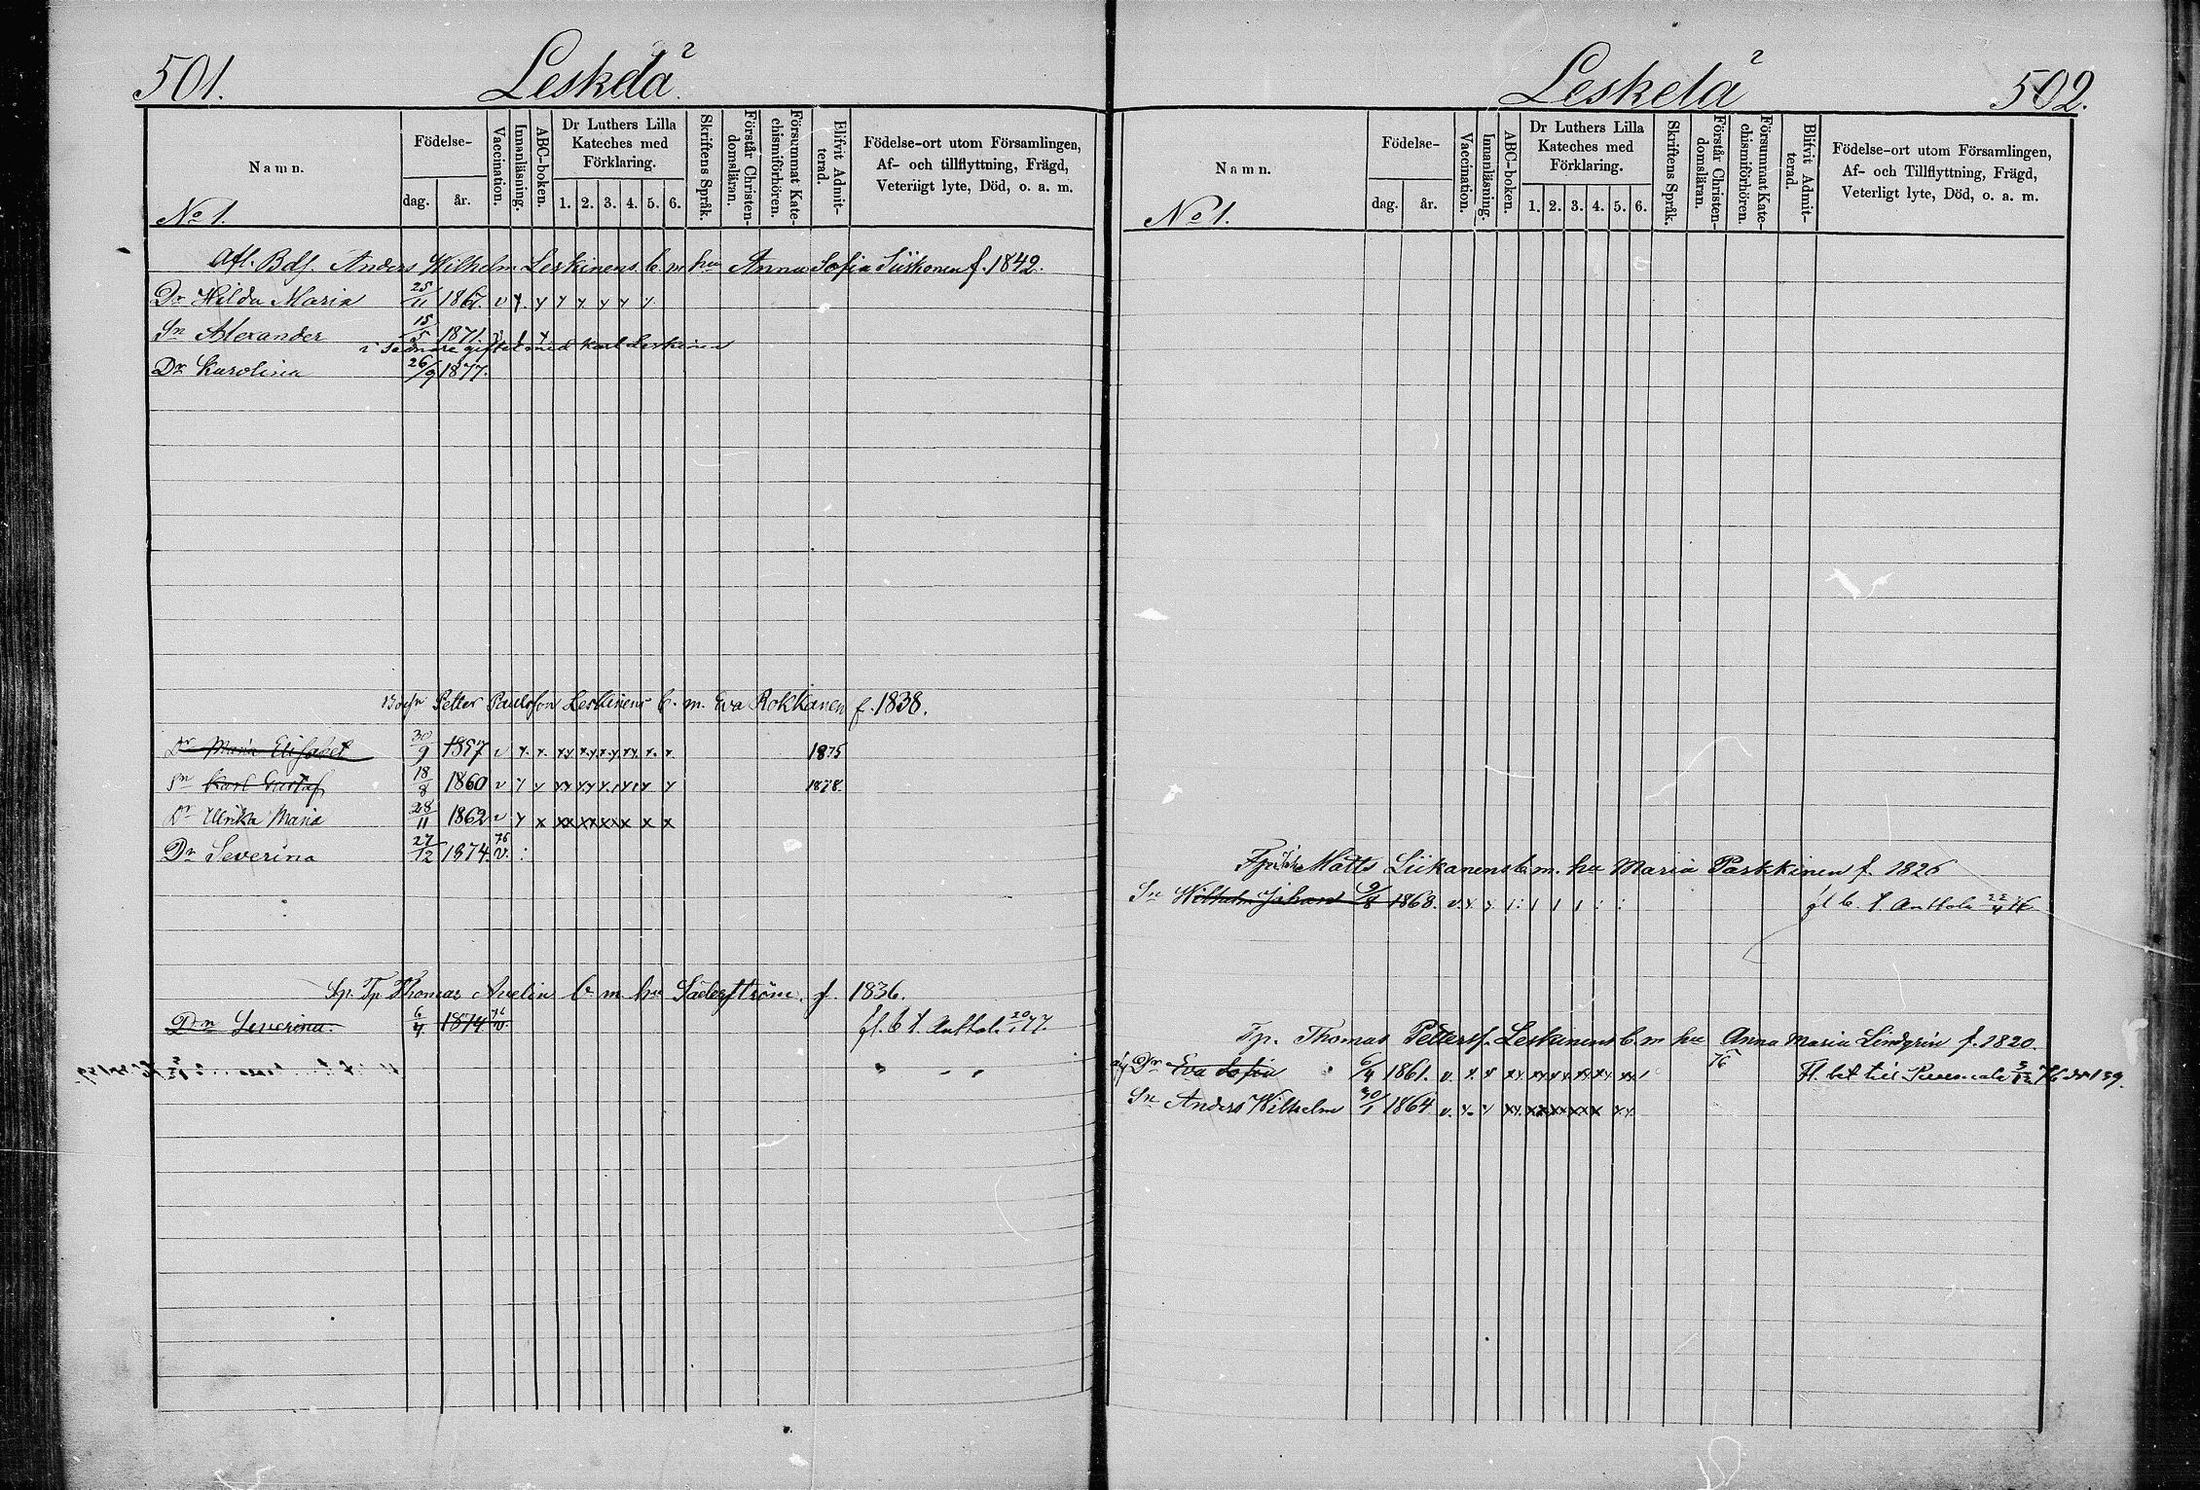 501.
Leskelä
Namn.
Födelse-
dag.
år.
Vaccination.
Innanläsning.
ABC-boken.
Dr Luthers Lilla
Kateches med
Förklaring.
1. 2. 3. 4. 5. 6.
Skriftens Språk.
Förstår Christen-
domsläran.
Försummat Kate-
chismiförhören.
Blifvit Admit-
terad.
Födelse-ort utom Församlingen,
Af- och tillflyttning, Frägd,
Veterligt lyte, Död, o. a. m.
No 1.
Afl. Bds. Anders Wilhelm Leskinens b. m. hu Anna Sofia Siiskonen f. 1842.
Dr Hilda Maria 25/11 1867. v
Sn Alexander 15/5 1871. v
i sednare giftet med Karl Leskinen
Dr Karolina 26/9 1877.
Petter Paulsson Leskinens b. m. Eva Rokkanen f. 1838.
Dr Maria Elisabet 30/9 1857 v 1875
Sn Karl Gustaf 18/8 1860 v 1878.
Dr Ulrika Maria 28/11 1862 v
Dr Severina 27/12 1874. 76 v.
Sp. Tp Thomas Auelin b. m. hu Säderström. f. 1836.
Dr Severina. 6/4 1874 76 v. fl. b. t. Anttola 20/1 77.
502.
Leskelä
Namn.
Födelse-
dag.
år.
Vaccination.
Innanläsning.
ABC-boken.
Dr Luthers Lilla
Kateches med
Förklaring.
1. 2. 3. 4. 5. 6.
Skriftens Språk.
Förstår Christen-
domsläran.
Försummat Kate-
chismiförhören.
Blifvit Admit-
terad.
Födelse-ort utom Församlingen,
Af- och Tillflyttning, Frägd,
Veterligt lyte, Död, o. a. m.
No 1.
Matts Liikanens b. m. hu Maria Parkkinen f. 1826
Sn Wilhelm Johan 9/8 1868. v. fl b. t. Anttola 22/4
Tp. Thomas Petterss. Leskinens b. m hu Anna Maria Lindgrin f. 1820.
Dr Eva Sofia 6/4 1861. v. 76 Fl. bet till 3/12 76 139.
Sn Anders Wilhelm 30/1 1864 v.